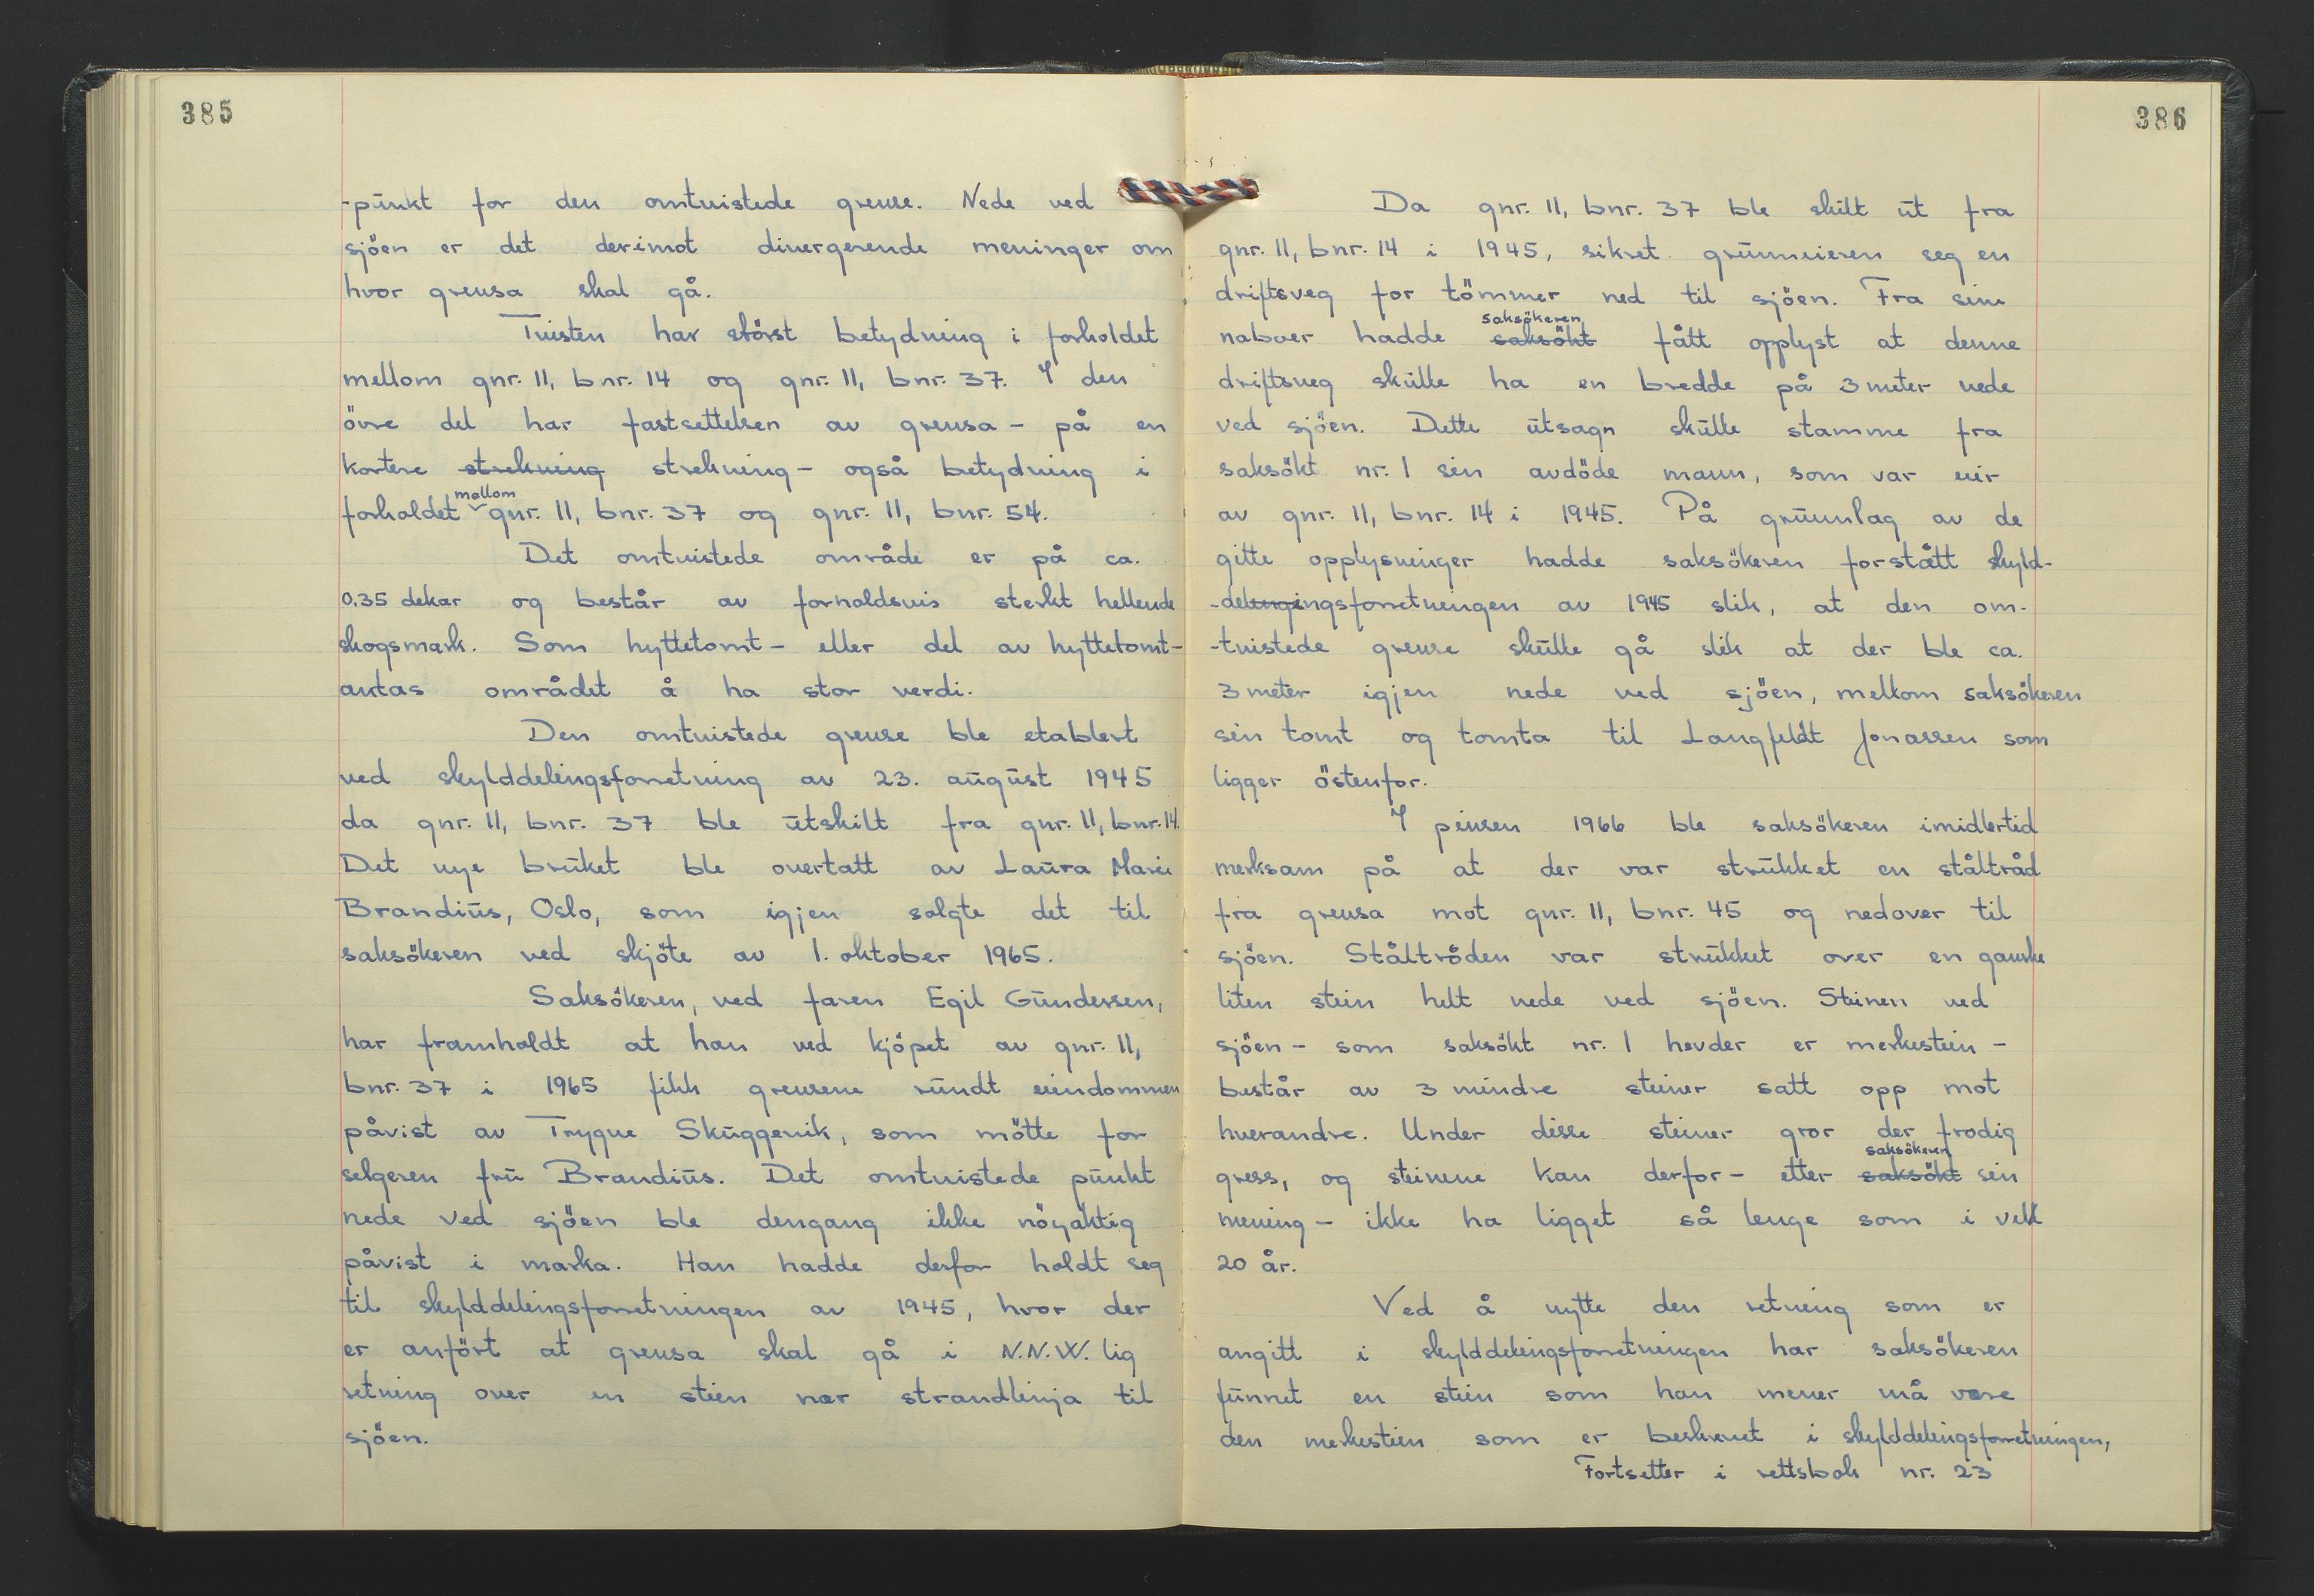 385
-punkt for den omtvistede grense. Nede ved
sjöen er det derimot divergerende meninger om
hvor grensa skal gå.
Tvisten har störst betydning i forholdet
mellom gnr. 11, bnr. 14 og gnr. 11, bnr. 37. I den
övre del har fastsettelsen av grensa - på en
kortere strekning strekning - også betydning i
forholdet mellom gnr. 11, bnr. 37 og gnr. 11, bnr. 54.
Det omtvistede område er på ca.
0.35 dekar og består av forholdsvis sterkt hellende
skogsmark. Som hyttetomt - eller del av hyttetomt -
antas området å ha stor verdi.
Den omtvistede grense ble etablert
ved skylddelingsforretning av 23. august 1945
da gnr. 11, bnr. 37 ble utskilt fra gnr. 11, bnr. 14.
Det nye bruket ble overtatt av Laura Marie
Brandius, Oslo, som igjen solgte det til
saksökeren ved skjöte av 1. oktober 1965.
Saksökeren, ved faren Egil Gundersen,
har framholdt at han ved kjöpet av gnr. 11,
bnr. 37 i 1965 fikk grensene rundt eiendommen
påvist av Trygve Skuggevik, som mötte for
selgeren fru Brandius. Det omtvistede punkt
nede ved sjöen ble dengang ikke nöyaktig
påvist i marka. Han hadde derfor holdt seg
til skylddelingsforretningen av 1945, hvor der
er anfört at grensa skal gå i N.N.W. lig
retning over en stein nær strandlinja til
sjöen.
386
Da gnr. 11, bnr. 37 ble skilt ut fra
gnr. 11, bnr. 14 i 1945, sikret grunneieren seg en
driftsveg for tömmer ned til sjöen. Fra sine
naboer hadde saksökt saksökeren fått opplyst at denne
driftsveg skulle ha en bredde på 3 meter nede
ved sjöen. Dette utsagn skulle stamme fra
saksökt nr. 1 sin avdöde mann, som var eier
av gnr. 11, bnr. 14 i 1945. På grunnlag av de
gitte opplysninger hadde saksökeren forstått skyld-
-delingsforretningen av 1945 slik, at den om-
-tvistede grense skulle gå slik at der ble ca.
3 meter igjen nede ved sjöen, mellom saksökeren
sin tomt og tomta til Langfeldt Jonassen som
ligger östenfor.
I pinsen 1966 ble saksökeren imidlertid
merksam på at der var strukket en ståltråd
fra grensa mot gnr. 11, bnr. 45 og nedover til
sjöen. Ståltråden var strukket over en ganske
liten stein helt nede ved sjöen. Steinen ved
sjöen - som saksökt nr. 1 hevder er merkestein -
består av 3 mindre steiner satt opp mot
hverandre. Under disse steiner gror der frodig
gress, og steinene kan derfor - etter saksökt saksökeren sin
mening - ikke ha ligget så lenge som i vel
20 år.
Ved å nytte den retning som er
angitt i skylddelingsforretningen har saksökeren
funnet en stein som han mener må være
den merkestein som er beskrevet i skylddelingsforretningen,
Fortsetter i rettsbok nr. 23